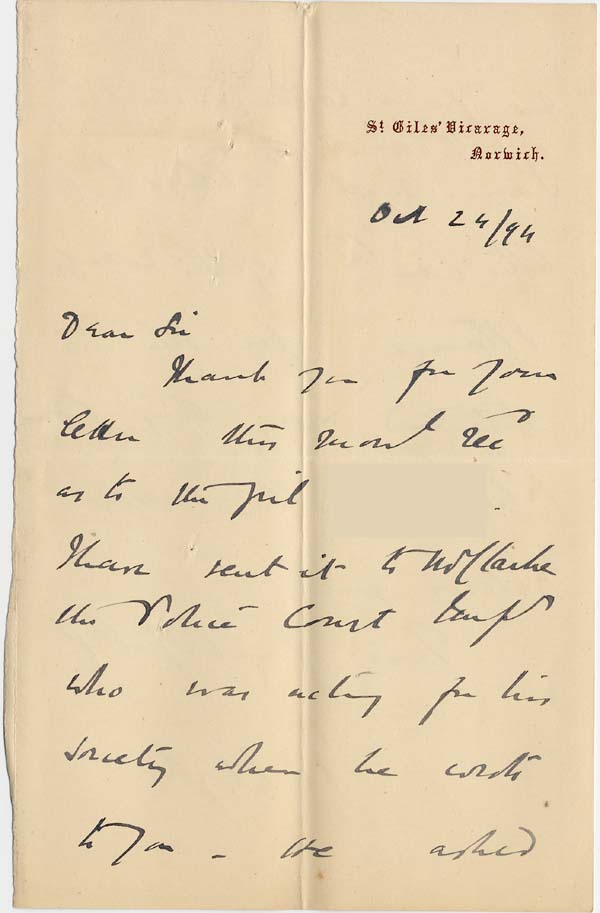 St Giles' Vicarage,
Norwich.
Oct 24/94
Dear Sir
Thank you for your
letter this morn^g rec^d
as to the girl
I have sent it to Mr Clarke
the Police Court
who was acting for his
society when he wrote
to you - He asked